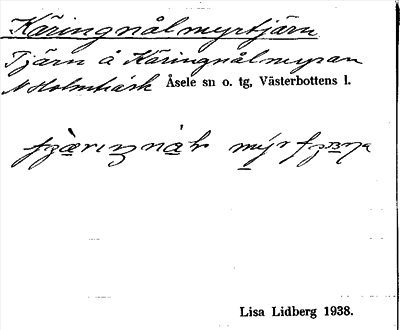 Käringnålmyrtjärn
Tjärn å Käringnålmyran
N Holmbäck Åsele sn o. tg, Västerbottens l.
Lisa Lidberg 1938.